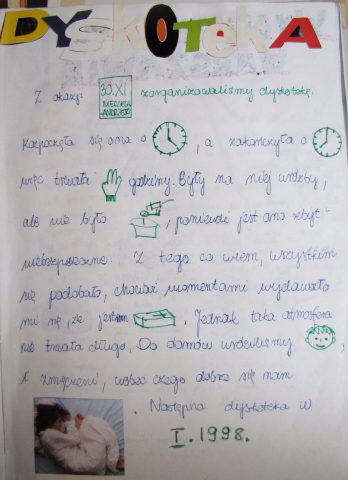 DYSKOTEKA
Z okazji 30.XI zorganizowaliśmy dyskotekę.
IMIENINY ANDRZEJA
Rozpoczęła się ona o , a zakończyła o
więc trwała godziny. Były na niej wróżby,
ale nie było , ponieważ jest ono zbyt
niebezpieczne. Z tego co wiem, wszystkim
się podobało, chociaż momentami wydawało
mi się, że jestem . Jednak taka atmosfera
nie trwała długo. Do domów wróciliśmy
i zmęczeni, wobec czego dobrze się nam
. Następna dyskoteka w
I.1998.